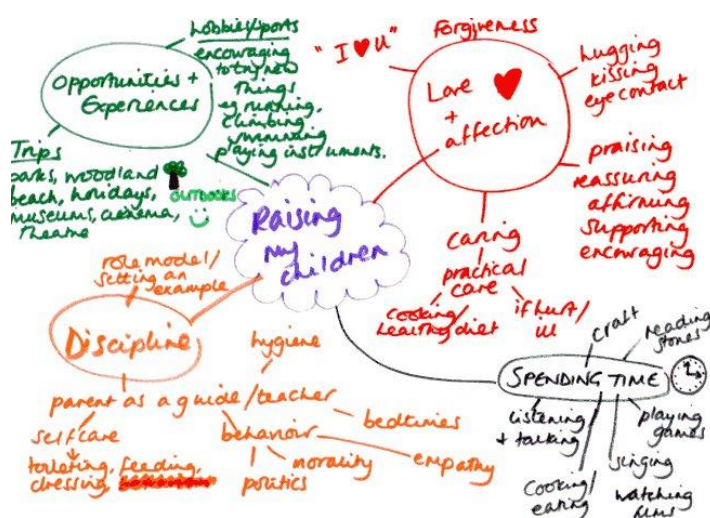 Hobbies/sports
encouraging
to try new
things
eg running,
climbing,
swimming
playing instruments.
Opportunities +
Experiences
Trips
parks, woodland
beach, holidays,
museums, cinema,
theatre
OUTDOORS
Raising
my
children
Forgiveness
"I ♥ U"
Love ♥
+
affection
hugging
kissing
eye contact
praising
reassuring
affirming
supporting
encouraging
caring
practical
care
cooking/
healthy diet
if hurt/
ill
role model/
setting an
example
Discipline
hygiene
parent as a guide/teacher
bedtimes
self care
toileting, feeding,
dressing,
behaviour
morality
politics
empathy
craft
reading
stories
SPENDING TIME
listening
+ talking
playing
games
singing
cooking/
eating
watching
films